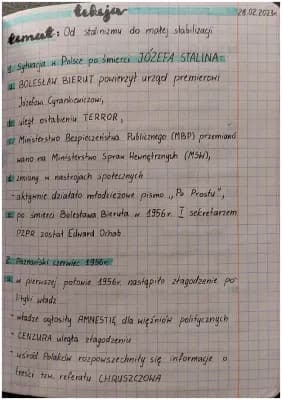 Lekcja
28.02.2023r.
Temat: Od stalinizmu do małej stabilizacji
1. Sytuacja w Polsce po śmierci JÓZEFA STALINA:
BOLESŁAW BIERUT powierzył urząd premierowi
Józefowi Cyrankiewiczowi,
uległ osłabieniu TERROR,
Ministerstwo Bezpieczeństwa Publicznego (MBP) przemiano
wano na Ministerstwo Spraw Wewnętrznych (MSW),
zmiany w nastrojach społecznych
- aktywnie działało młodzieżowe pismo „Po Prostu",
po śmierci Bolesława Bieruta w 1956r. I sekretarzem
PZPR został Edward Ochab.
2. Poznański czerwiec 1956r.
w pierwszej połowie 1956r. nastąpiło złagodzenie po-
lityki władz
- władze ogłosiły AMNESTIĘ dla więźniów politycznych
- CENZURA uległa złagodzeniu
- wśród Polaków rozpowszechniły się informacje o
treści tzw. referatu CHRUSZCZOWA